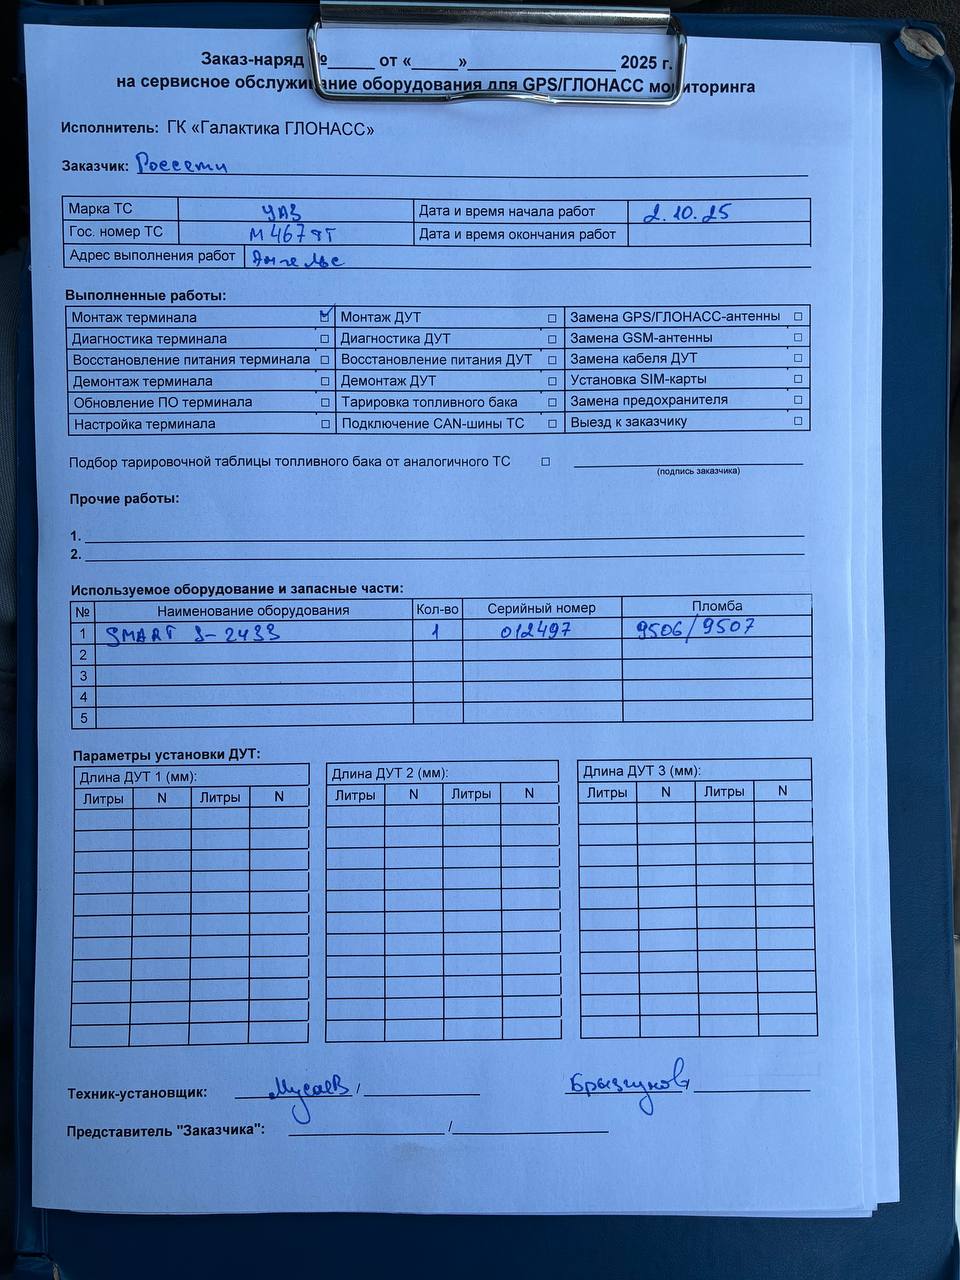 Заказ-наряд №_____ от «_____»________________ 2025 г.
на сервисное обслуживание оборудования для GPS/ГЛОНАСС мониторинга
Исполнитель: ГК «Галактика ГЛОНАСС»
Заказчик: Россети
Марка ТС УАЗ Дата и время начала работ 2.10.25
Гос. номер ТС М 467 Дата и время окончания работ
Адрес выполнения работ Энгельс
Выполненные работы:
Монтаж терминала ☑ Монтаж ДУТ □ Замена GPS/ГЛОНАСС-антенны □
Диагностика терминала □ Диагностика ДУТ □ Замена GSM-антенны □
Восстановление питания терминала □ Восстановление питания ДУТ □ Замена кабеля ДУТ □
Демонтаж терминала □ Демонтаж ДУТ □ Установка SIM-карты □
Обновление ПО терминала □ Тарировка топливного бака □ Замена предохранителя □
Настройка терминала □ Подключение CAN-шины ТС □ Выезд к заказчику □
Подбор тарировочной таблицы топливного бака от аналогичного ТС □
(подпись заказчика)
Прочие работы:
1.
2.
Используемое оборудование и запасные части:
№ Наименование оборудования Кол-во Серийный номер Пломба
1 SMART S-2433 1 012497 9506/9507
2
3
4
5
Параметры установки ДУТ:
Длина ДУТ 1 (мм): Длина ДУТ 2 (мм): Длина ДУТ 3 (мм):
Литры N Литры N Литры N Литры N Литры N Литры N
Техник-установщик: Мусаев / Брызгунов /
Представитель "Заказчика": /